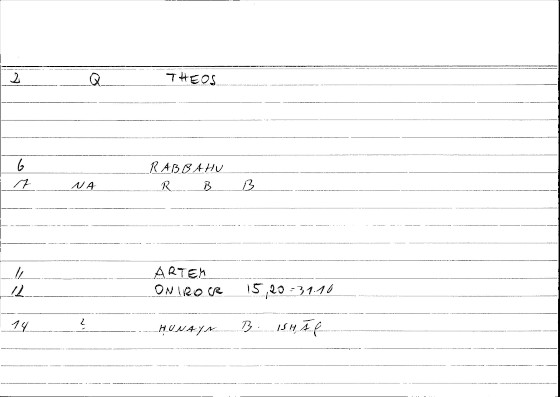 2 Q THEOS
6 RABBAHU
7 NA R B B
11 ARTEM
12 ONIROCR 15,20=31.10
14 ? ḤUNAYN B. ISḤĀQ